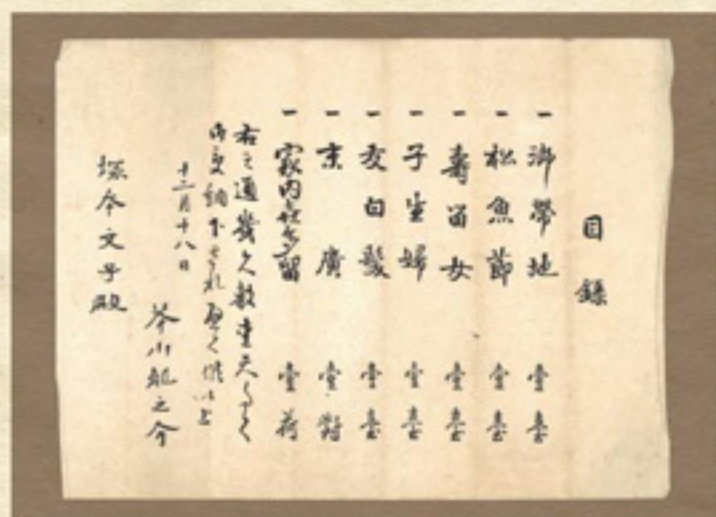 目録
一 御帯地 壹臺
一 松魚節 壹臺
一 壽留女 壹臺
一 子生婦 壹臺
一 友白髪 壹臺
一 末廣 壹對
一 家内喜多留 壹荷
右之通幾久敷
御受納下され
十二月十八日
芥川龍之介
塚本文子殿